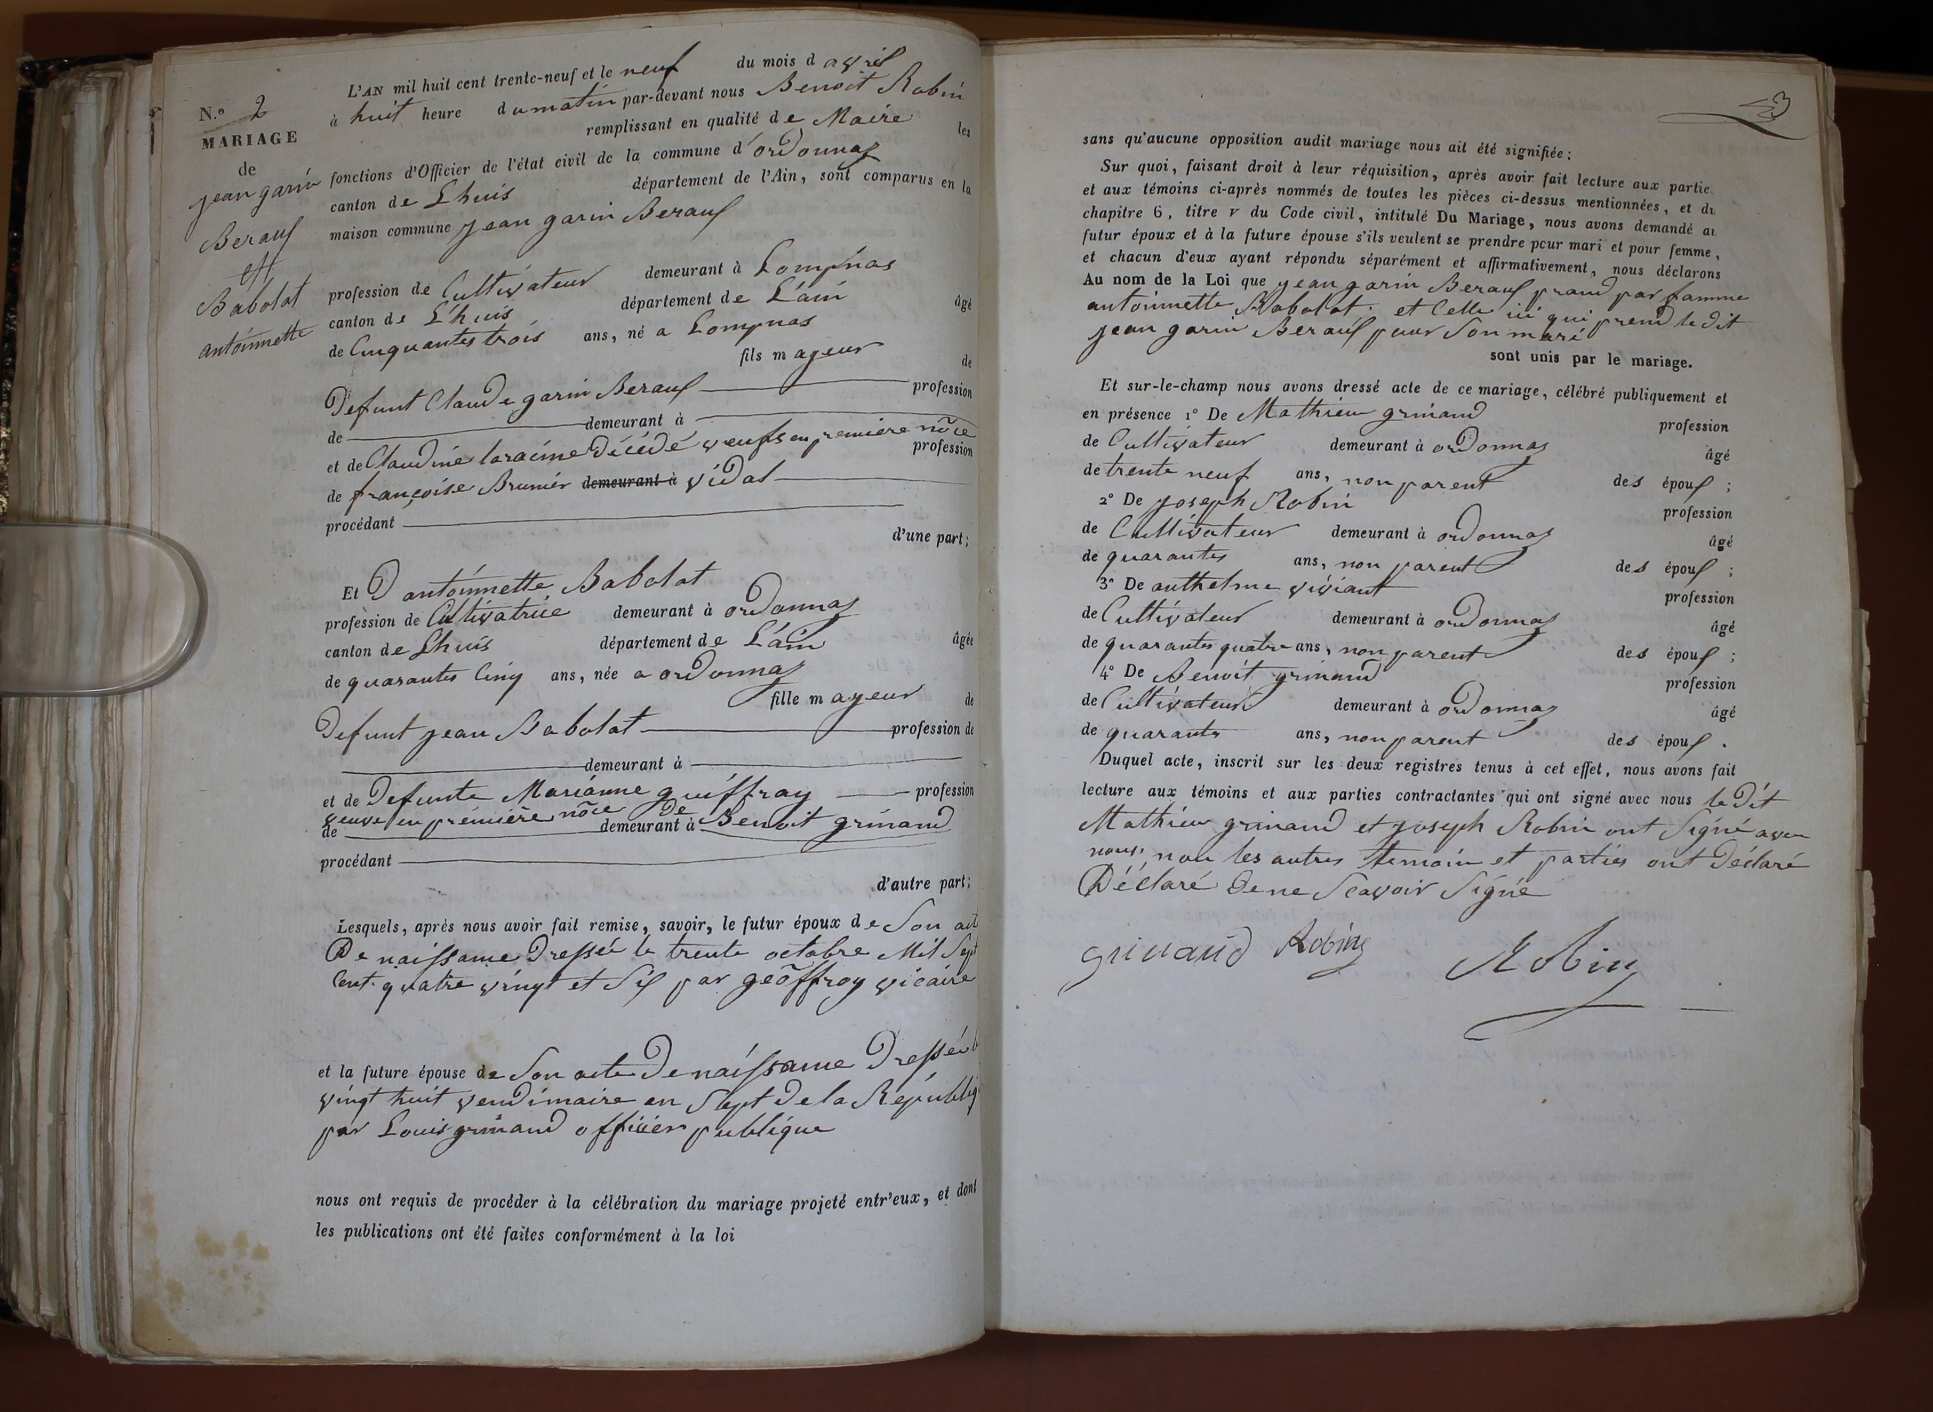 N.º 2
MARIAGE
de
jean garin
Berauf
et
Babolat
antoinnette
L'AN mil huit cent trente-neuf et le neuf du mois d avril
à huit heure du matin par-devant nous Benoit Robin
remplissant en qualité de Maire les
fonctions d'Officier de l'état civil de la commune d'ordonnaz
canton de Lhuis département de l'Ain, sont comparus en la
maison commune jean garin Berauf
profession de Cultivateur demeurant à Lompnas
canton de L'huis département de L'ain âgé
de Cinquantes trois ans, né a Lompnas
fils mageur de
Defunt Claude garin Berauf profession
de demeurant à
et de Claudine laracine décédé veufs en premiere nôce profession
de françoise Brunier demeurant à vidal
procédant
d'une part;
Et D antoinnette Babolat
profession de Cultivatrice demeurant à ordonnaz
canton de Lhuis département de L'ain âgée
de quarantes Cinq ans, née a ordonnaz
fille mageur de
Defunt jean Babolat profession de
demeurant à
et de Defunte Marianne guiffray profession
veuve en première nôce De
de demeurant à Benoit grinand
procédant
d'autre part;
Lesquels, après nous avoir fait remise, savoir, le futur époux de Son act
De naissame Dressée le trente octobre Mil Sept
Cent quatre vingt et Six par geoffroy vicaire
et la future épouse de Son acte De naissame Dressée le
vingt huit vendimaire an Sept De la Républiq
par Louis grinand officier publique
nous ont requis de procéder à la célébration du mariage projeté entr'eux, et dont
les publications ont été faites conformément à la loi
3
sans qu'aucune opposition audit mariage nous ait été signifiée;
Sur quoi, faisant droit à leur réquisition, après avoir fait lecture aux partie
et aux témoins ci-après nommés de toutes les pièces ci-dessus mentionnées, et du
chapitre 6, titre v du Code civil, intitulé Du Mariage, nous avons demandé au
futur époux et à la future épouse s'ils veulent se prendre pour mari et pour femme,
et chacun d'eux ayant répondu séparément et affirmativement, nous déclarons
Au nom de la Loi que jean garin Berauf prand par famme
antoinnette Babolat. et Celle ici qui prend le dit
jean garin Berauf pour Son maré
sont unis par le mariage.
Et sur-le-champ nous avons dressé acte de ce mariage, célébré publiquement et
en présence 1º De Mathieu grinand profession
de Cultivateur demeurant à ordonnaz âgé
de trente neuf ans, non parent des épouf ;
2º De joseph Robin profession
de Cultivateur demeurant à ordonnaz âgé
de quarantes ans, non parent des épouf ;
3º De anthelme viviant profession
de Cultivateur demeurant à ordonnaz âgé
de quarantes quatre ans, non parent des épouf ;
4º De Benoit grinand profession
de Cultivateur demeurant à ordonnaz âgé
de quarante ans, non parent des épouf .
Duquel acte, inscrit sur les deux registres tenus à cet effet, nous avons fait
lecture aux témoins et aux parties contractantes qui ont signé avec nous le Dit
Mathieu grinand et joseph Robin ont Signé avec
nous, non les autres temoin et parties ont Déclaré
Déclaré De ne Scavoir Signé
grinand Robin Robin